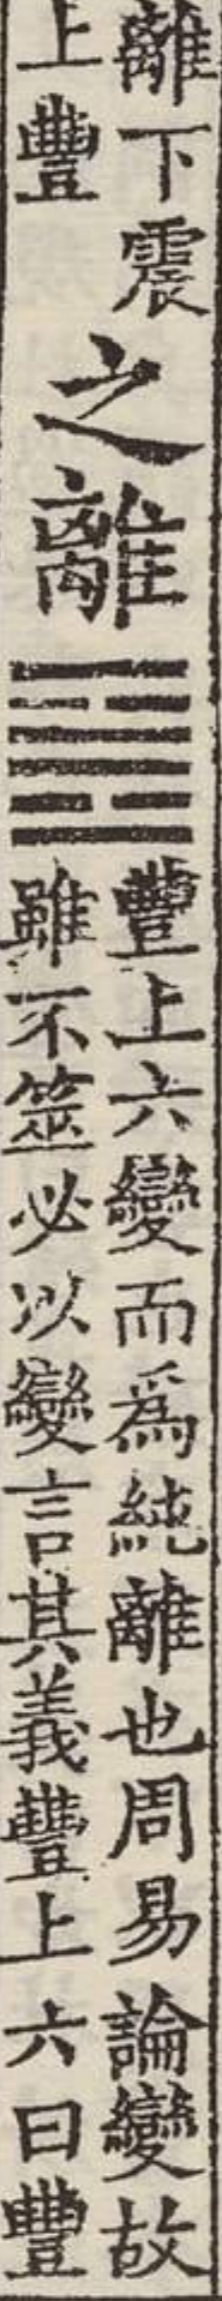 離下震
上豐
之離䷝
豐上六變而爲純離也周易論變故
雖不筮必以變言其義豐上六曰豐